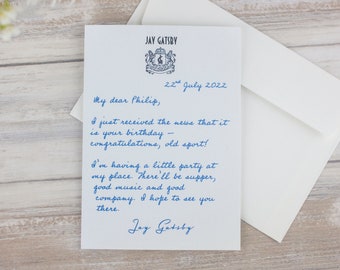 JAY GATSBY
22nd July 2022
My dear Philip,
I just received the news that it
is your birthday –
congratulations, old sport!
I'm having a little party at
my place. There'll be supper,
good music and good
company. I hope to see you
there.
Jay Gatsby